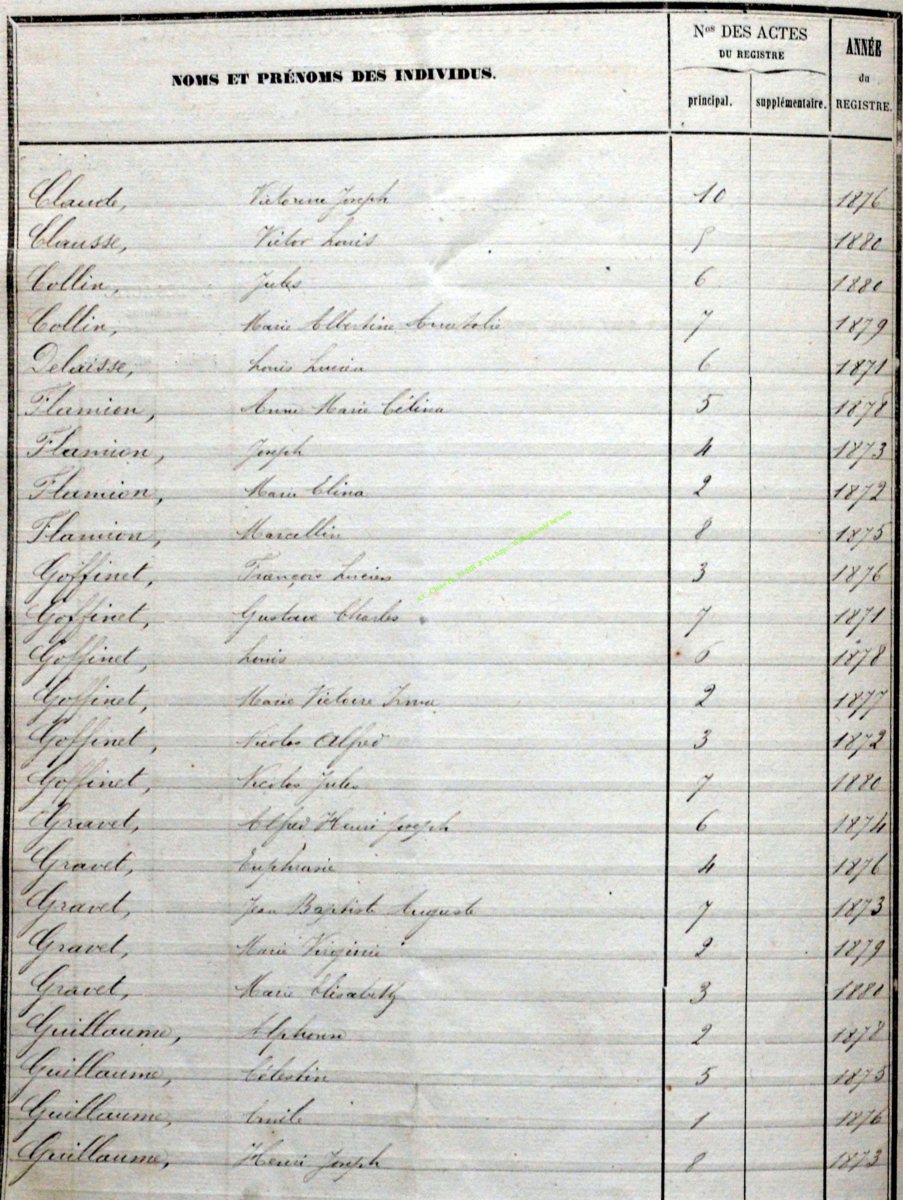 NOMS ET PRÉNOMS DES INDIVIDUS.
Nos DES ACTES
DU REGISTRE
principal.
supplémentaire.
ANNÉE
du
REGISTRE.
Claude, Victorine Joseph 10 1876
Clausse, Victor Louis 5 1880
Collin, Jules 6 1880
Collin, Marie Albertine Anatolie 7 1879
Delaisse, Louis Lucien 6 1871
Flamion, Anne Marie Célina 5 1878
Flamion, Joseph 4 1873
Flamion, Marie Elina 2 1872
Flamion, Marcellin 8 1875
Goffinet, François Lucien 3 1876
Goffinet, Gustave Charles 7 1871
Goffinet, Louis 6 1878
Goffinet, Marie Victoire Irma 2 1877
Goffinet, Nicolas Alfred 3 1872
Goffinet, Nicolas Jules 7 1880
Gravet, Alfred Henri Joseph 6 1874
Gravet, Euphrasie 4 1876
Gravet, Jean Baptiste Auguste 7 1873
Gravet, Marie Virginie 2 1879
Gravet, Marie Elisabeth 3 1880
Guillaume, Alphonse 2 1878
Guillaume, Célestin 5 1875
Guillaume, Emile 1 1876
Guillaume, Henri Joseph 8 1873